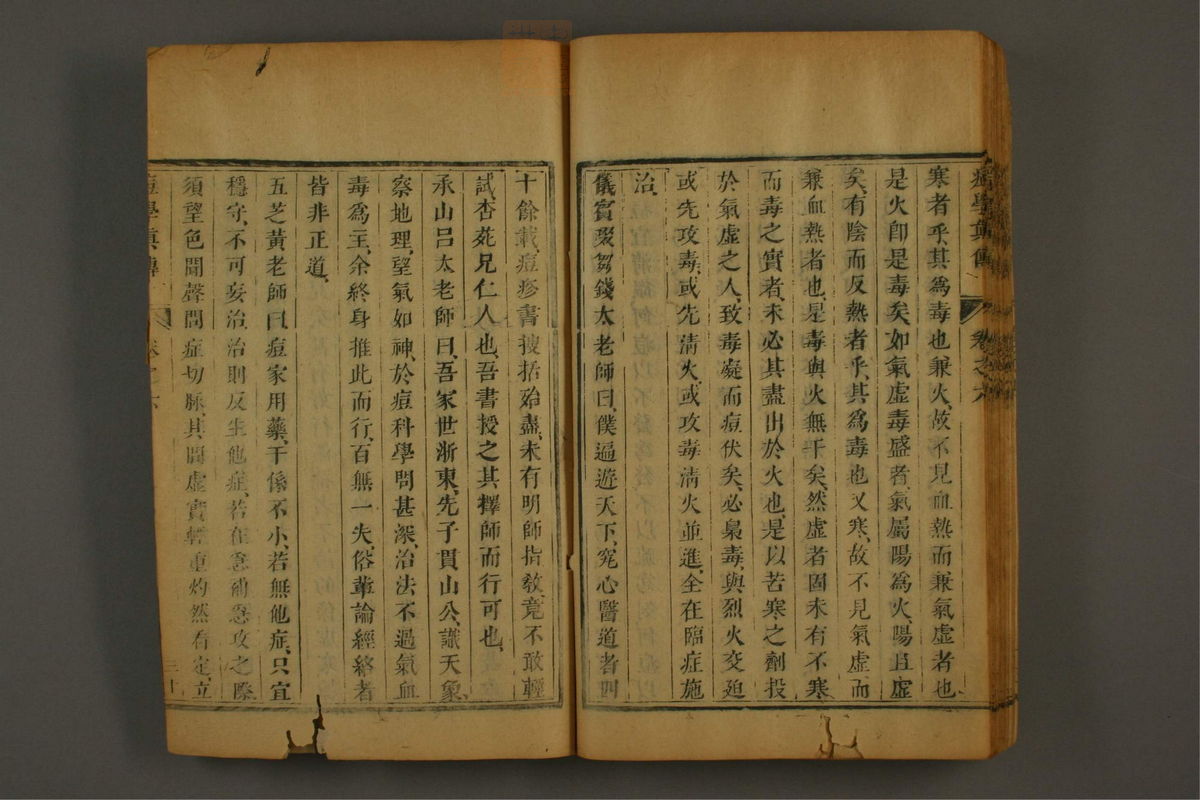 痘學真傳 卷之六
寒者乎其爲毒也兼火故不見血熱而兼氣虛者也
是火卽是毒矣如氣虛毒盛者氣屬陽爲火陽且虛
矣有陰而反熱者乎其爲毒也又寒故不見氣虛而
兼血熱者也是毒與火無干矣然虛者固未有不寒
而毒之實者未必其盡出於火也是以苦寒之劑投
於氣虛之人致毒凝而痘伏矣必梟毒與烈火交迫
或先攻毒或先清火或攻毒清火並進全在臨症施
治
儀賓聚芻錢太老師曰僕遍遊天下究心醫道者四
十餘載痘疹書搜括殆盡未有明師指教竟不敢輕
試杏苑兄仁人也吾書授之其擇師而行可也
承山呂太老師曰吾家世浙東先子貫山公識天象
察地理望氣如神於痘科學問甚深治法不過氣血
毒爲主余終身推此而行百無一失俗輩論經絡者
皆非正道
五芝黃老師曰痘家用藥干係不小若無他症只宜
穩守不可妄治治則反生他症若在急補急攻之際
須望色聞聲問症切脉其間虛實輕重灼然看定立
痘學真傳 卷之六 三十